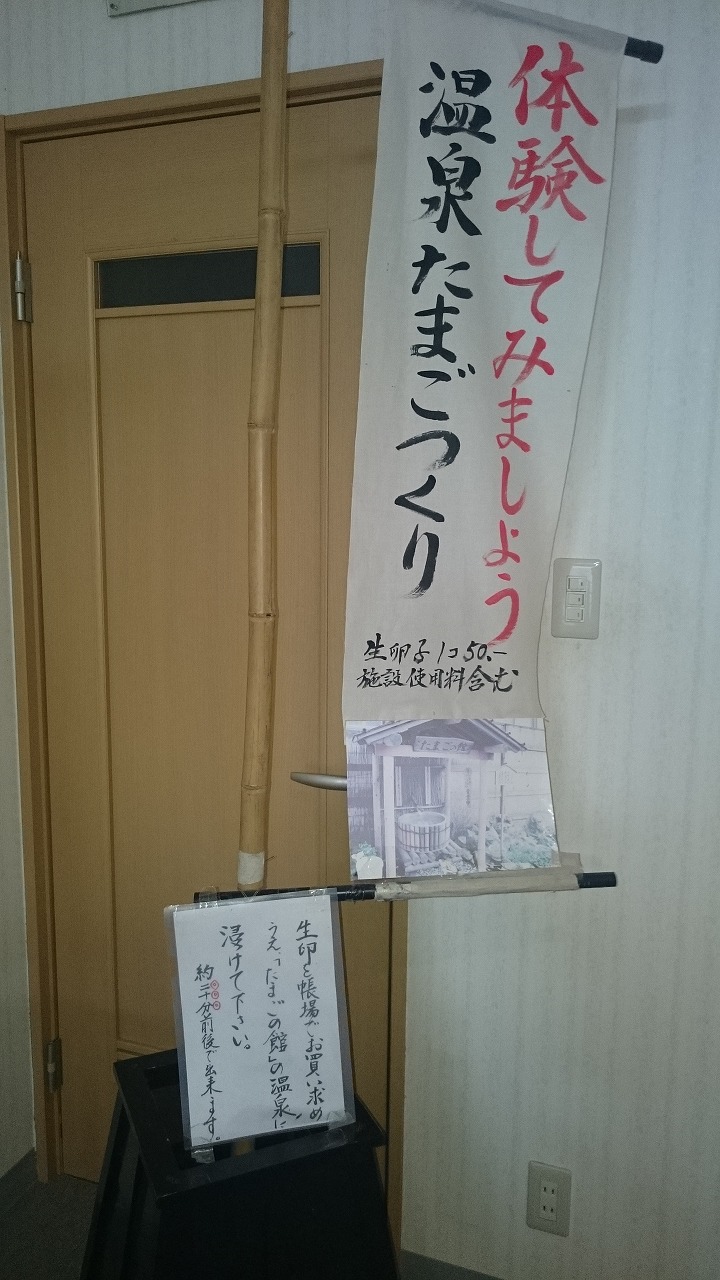 体験してみましょう
温泉たまごつくり
生卵子1コ50.-
施設使用料含む
たまごの館
生卵を帳場でお買い求め
うえ「たまごの館」の温泉に
浸けて下さい。
約二十分前後で出来ます。